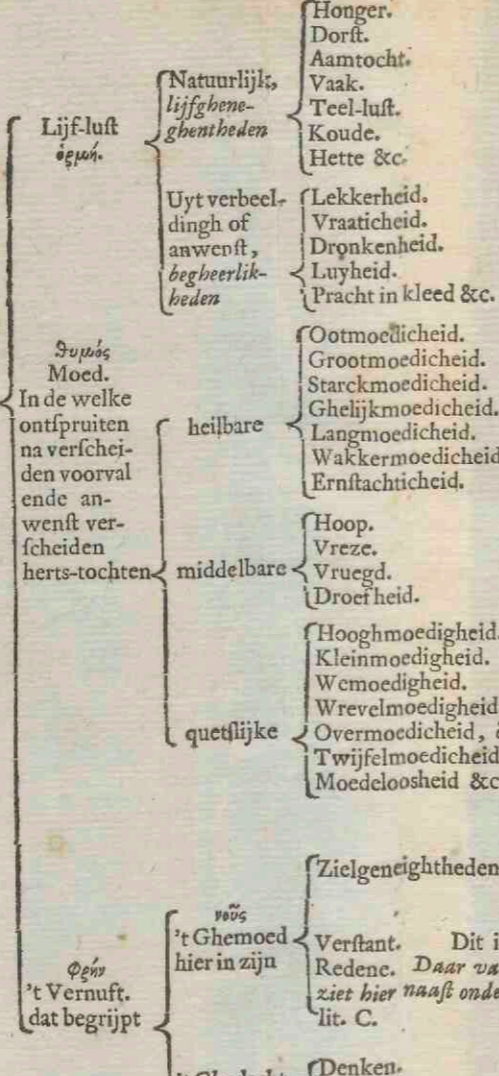 Lijf-luſt
ὁρμή.
Natuurlijk,
lijfghene-
ghentheden
Honger.
Dorſt.
Aamtocht.
Vaak.
Teel-luſt.
Koude.
Hette &c.
Uyt verbeel-
dingh of
anwenſt,
begheerlik-
heden
Lekkerheid.
Vraaticheid.
Dronkenheid.
Luyheid.
Pracht in kleed &c.
θυμός
Moed.
In de welke
ontſpruiten
na verſchei-
den voorval
ende an-
wenſt ver-
ſcheiden
herts-tochten
heilbare
Ootmoedicheid.
Grootmoedicheid.
Starckmoedicheid.
Ghelijkmoedicheid.
Langmoedicheid.
Wakkermoedicheid
Ernſtachticheid.
middelbare
Hoop.
Vreze.
Vruegd.
Droefheid.
quetſlijke
Hooghmoedigheid.
Kleinmoedigheid.
Wemoedigheid.
Wrevelmoedigheid
Overmoedicheid,
Twijfelmoedicheid
Moedeloosheid &c
Φρήν
't Vernuft.
dat begrijpt
νοῦς
't Ghemoed
hier in zijn
Zielgeneightheden
Verſtant. Dit i
Redene. Daar va
ziet hier naaſt onde
lit. C.
Denken.